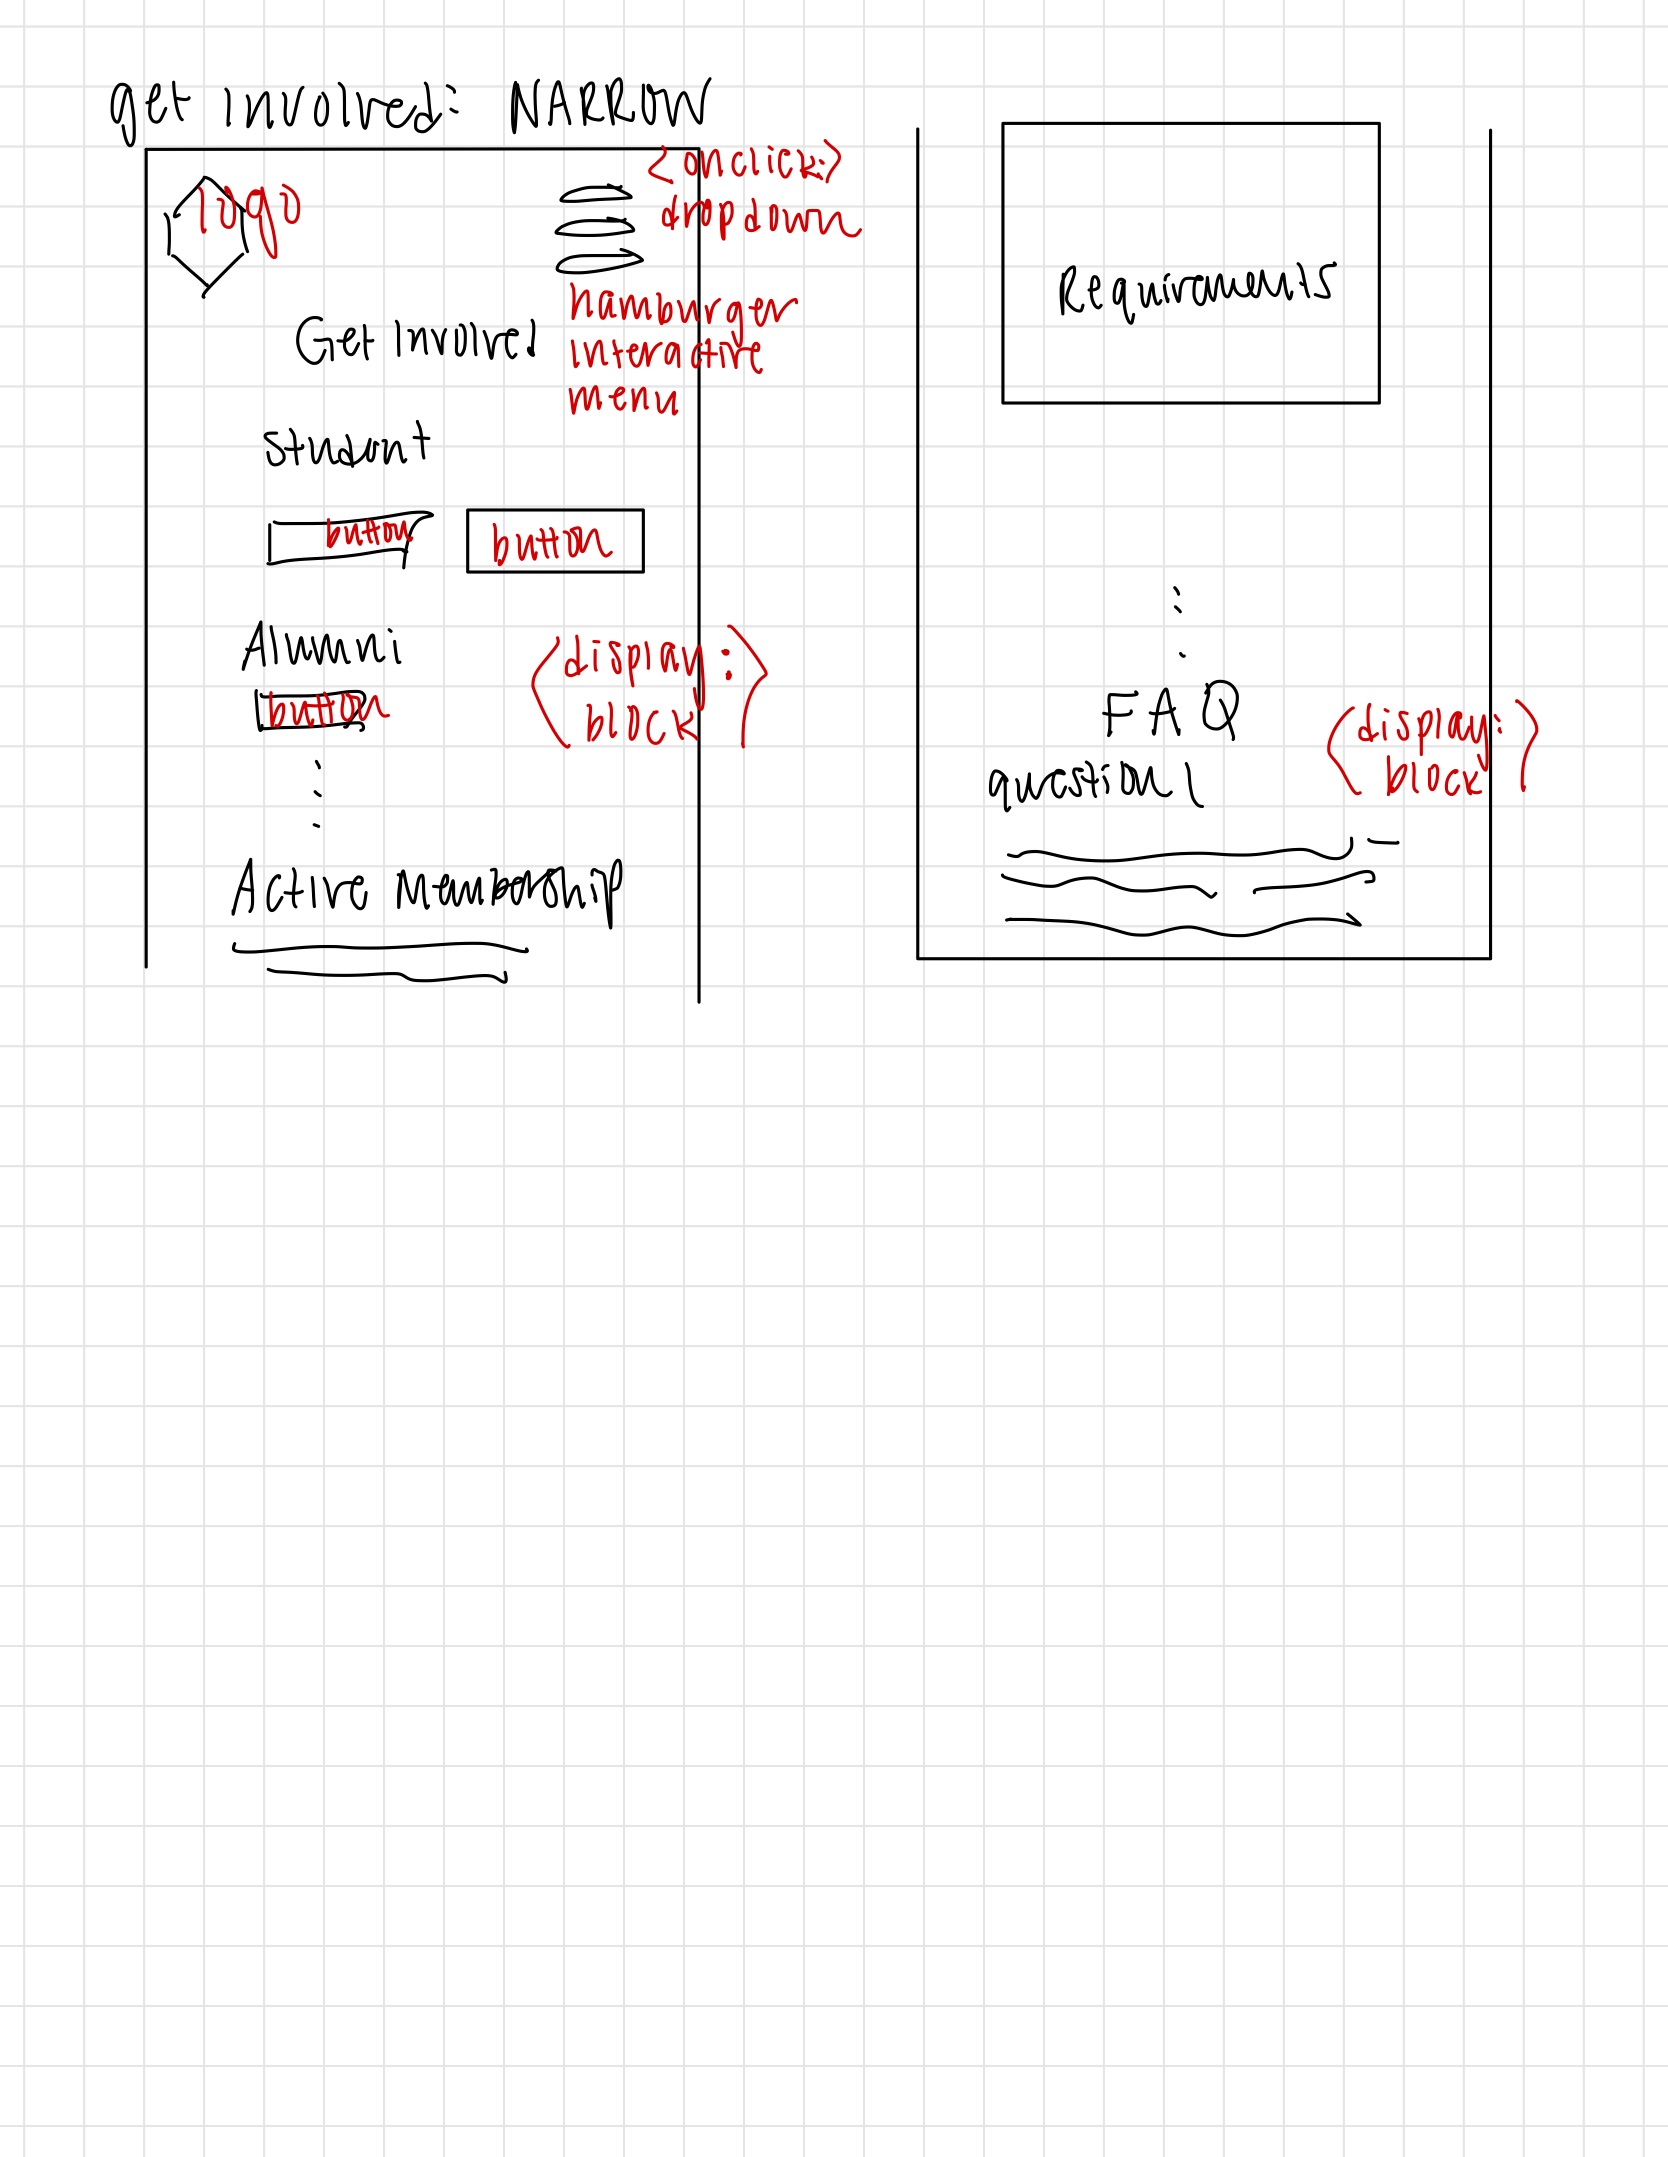 get involved: NARROW
logo
<onclick:>
dropdown
hamburger
interactive
menu
Get Involved
Student
button
button
Alumni
button
(display:
block)
Active Membership
Requirements
FAQ
question 1
(display:
block)